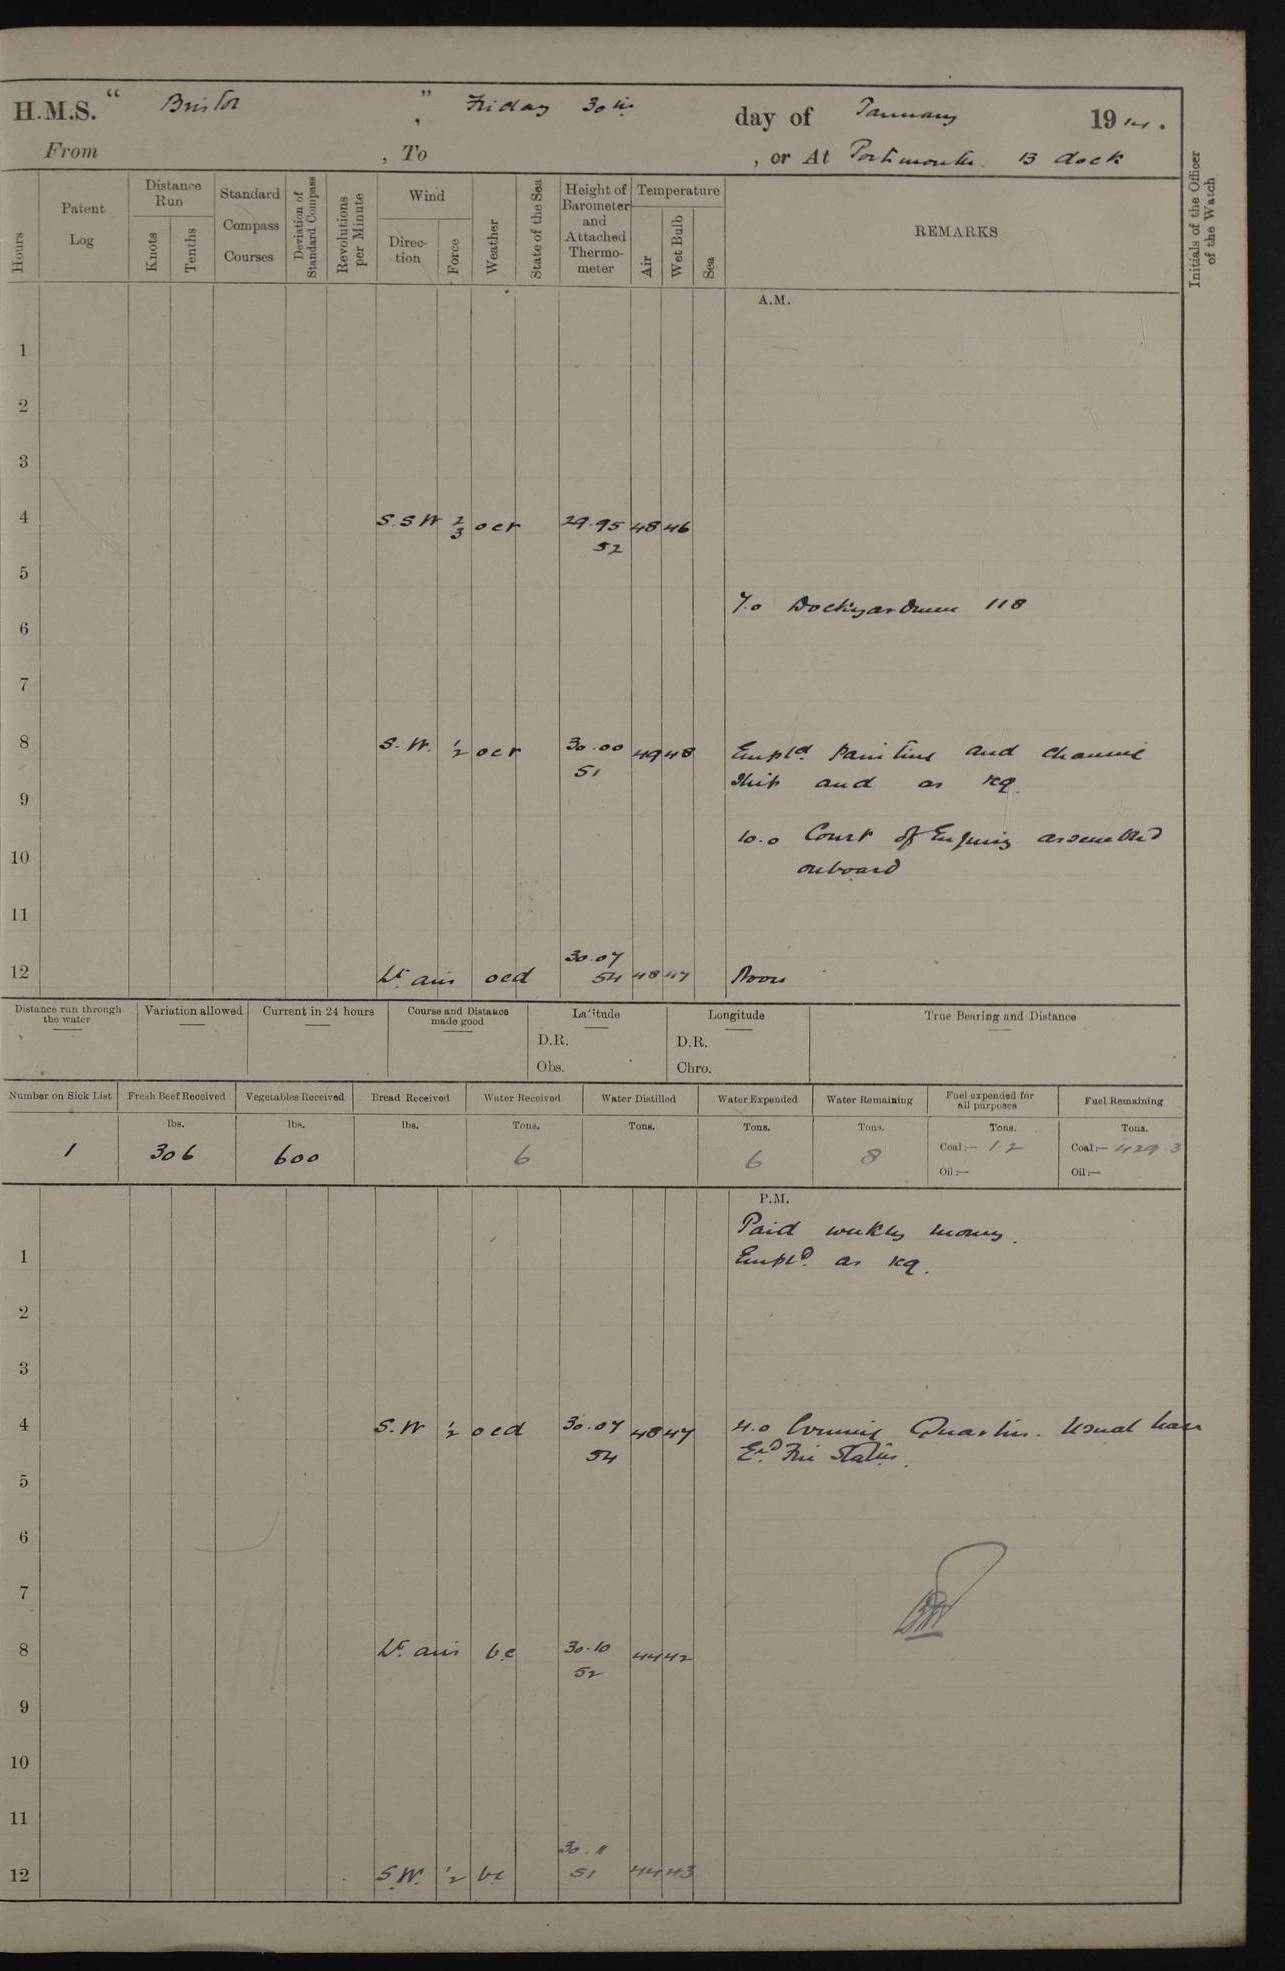 H.M.S. " Bristol " , Friday 30th day of January 1914.
From , To , or At Portsmouth. 13 dock
Hours
Patent Log
Distance Run
Knots
Tenths
Standard Compass Courses
Deviation of Standard Compass
Revolutions per Minute
Wind
Direction
Force
Weather
State of the Sea
Height of Barometer and Attached Thermometer
Temperature
Air
Wet Bulb
Sea
REMARKS
Initials of the Officer of the Watch
A.M.
1
2
3
4 S.S.W 2/3 ocr 29.95 48 46
52
5
7.0 Dockyardmen 118
6
7
8 S.W. 1/2 ocr 30.00 49 48 Empld. painting and cleaning
51 ship and as req.
9
10.0 Court of Enquiry assembled
10 onboard
11
30.07
12 Lt airs ocd 54 48 47 Noon
Distance run through the water
Variation allowed
Current in 24 hours
Course and Distance made good
Latitude
D.R.
Obs.
Longitude
D.R.
Chro.
True Bearing and Distance
Number on Sick List Fresh Beef Received Vegetables Received Bread Received Water Received Water Distilled Water Expended Water Remaining Fuel expended for all purposes Fuel Remaining
lbs. lbs. lbs. Tons. Tons. Tons. Tons. Tons. Tons.
1 306 600 6 6 8 Coal:— 1.2 Coal:— 429.3
Oil:— Oil:—
P.M.
Paid weekly money.
1 Empld. as req.
2
3
4 S.W 1/2 ocd 30.07 48 47 4.0 Evening Quarters. Usual
54 Exd Fire Stations.
5
6
7
8 Lt. airs bc 30.10 44 42
52
9
10
11
30.11
12 S.W. 1/2 bc 51 44 43